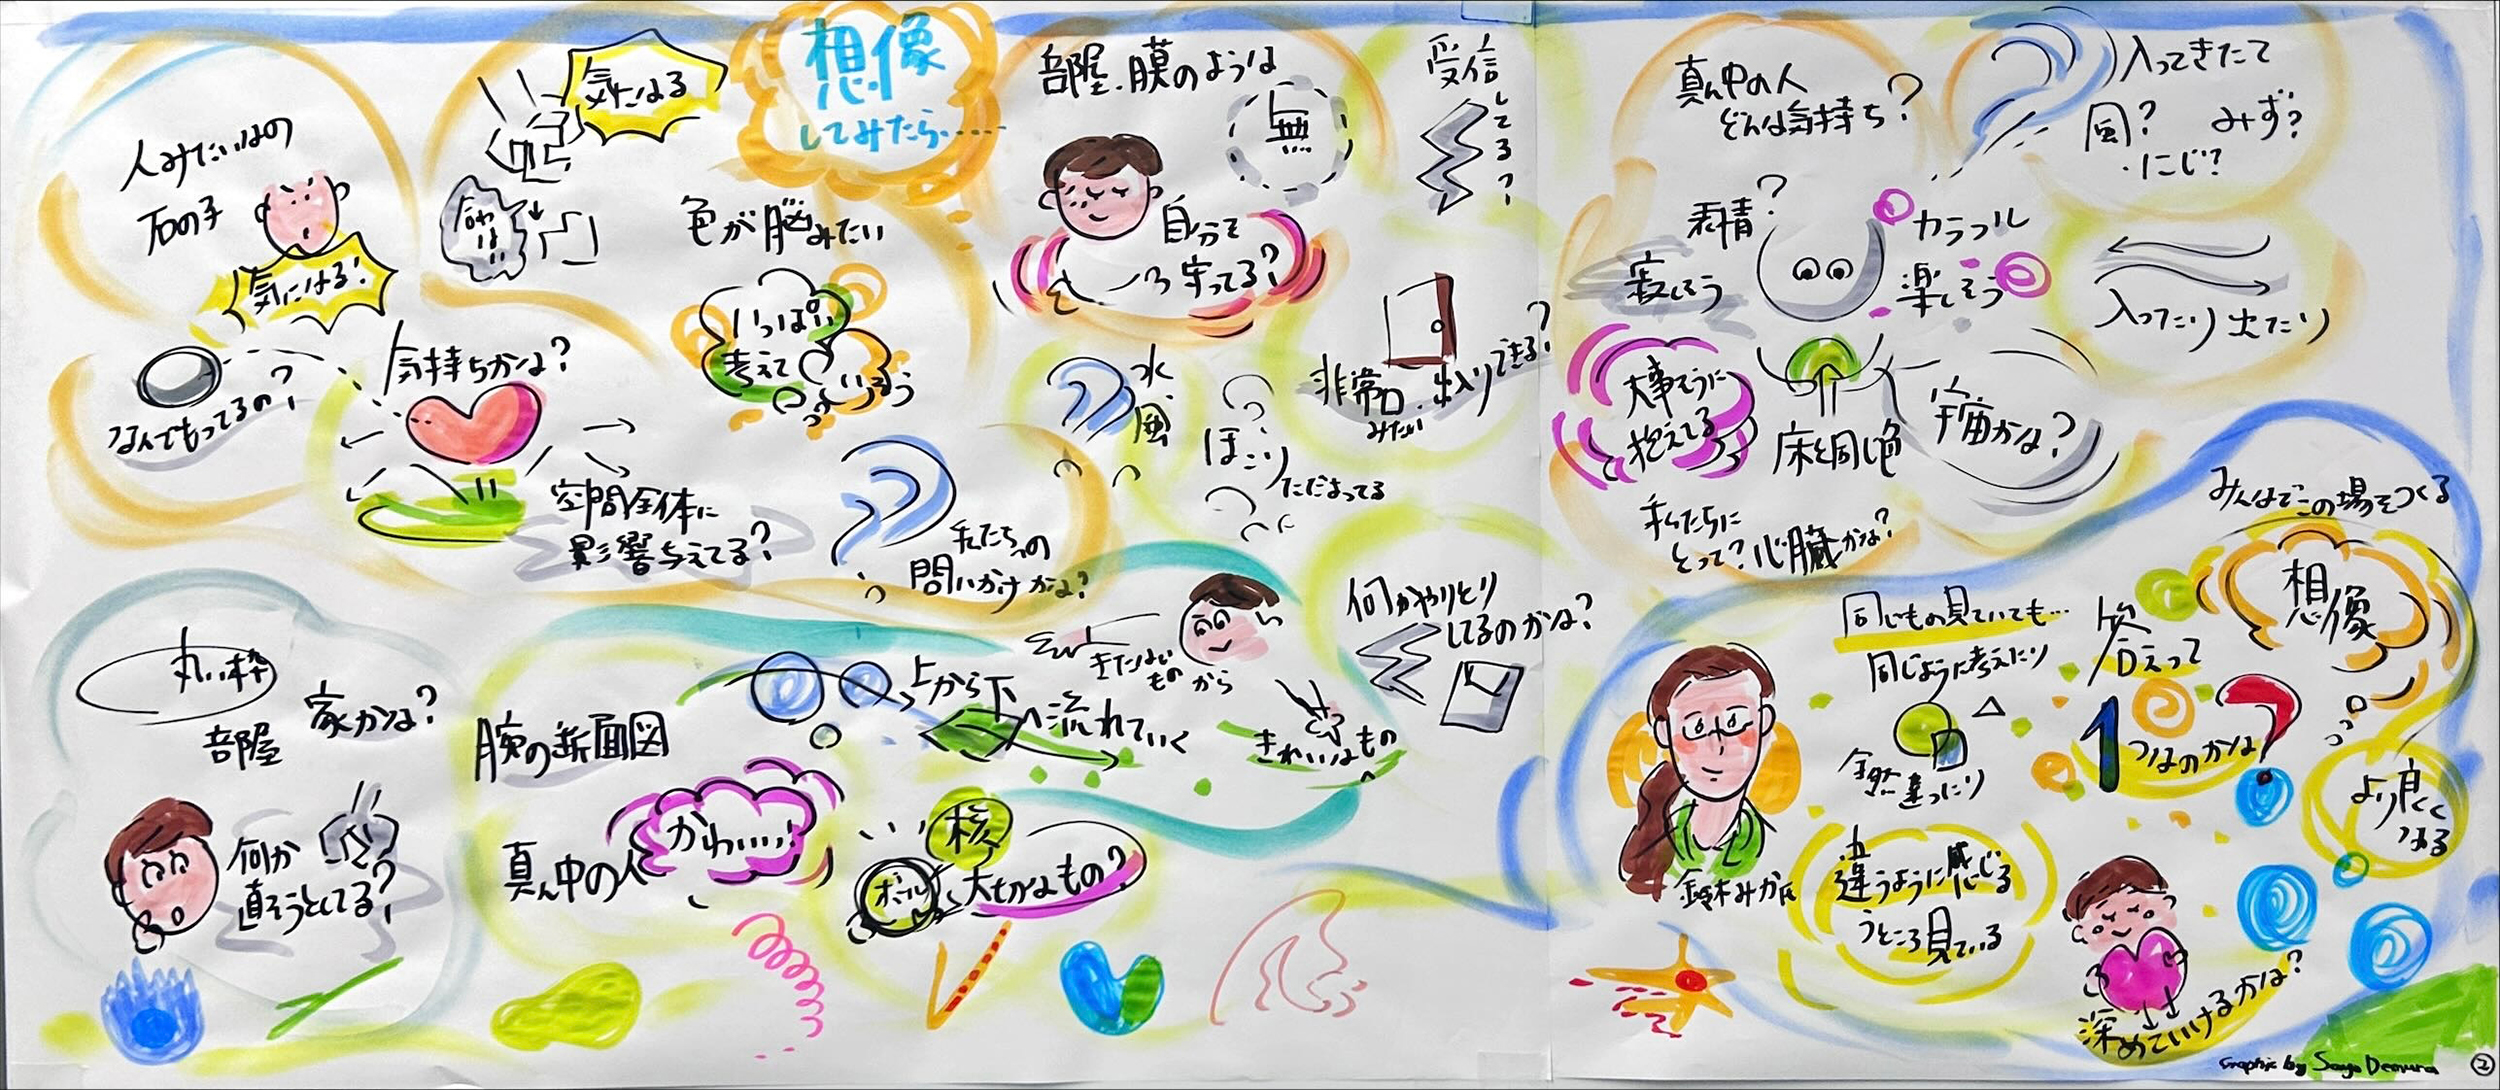 想像
してみたら……
人みたいなの
石の子
気になる!
なんでもってるの?
気になる
気持ちかな?
空間全体に
影響与えてる?
色が脳みたい
いっぱい
考えて
いろう
私たちの
問いかけかな?
部屋.膜のような
無
自分を
守ってる?
受信
してる?
水
風
ほこり
ただよってる
非常口.出入りできる?
みたい
真ん中の人
どんな気持ち?
入ってきたて
風? みず?
・にじ?
表情?
寂しそう
カラフル
楽しそう
入ってたり出てたり
大事そうに
抱えてる
床と同じ色
宇宙かな?
私たちに
とって?心臓かな?
丸い枠
部屋
家かな?
何か
直そうとしてる?
腕の断面図
上から下
へ流れていく
きたない
ものから
きれいなもの
へ
何かやりとり
してるのかな?
真ん中の人
かわいい!
核
ボール
大切なもの?
みんなでこの場をつくる
想像
同じもの見ていても…
同じように考えたり
全然違ったり
答えって
1つなのかな?
より良く
なる
鈴木みか氏
違うように感じる
うところ見ている
深めていけるかな?
Graphic by Sayo Demura
②